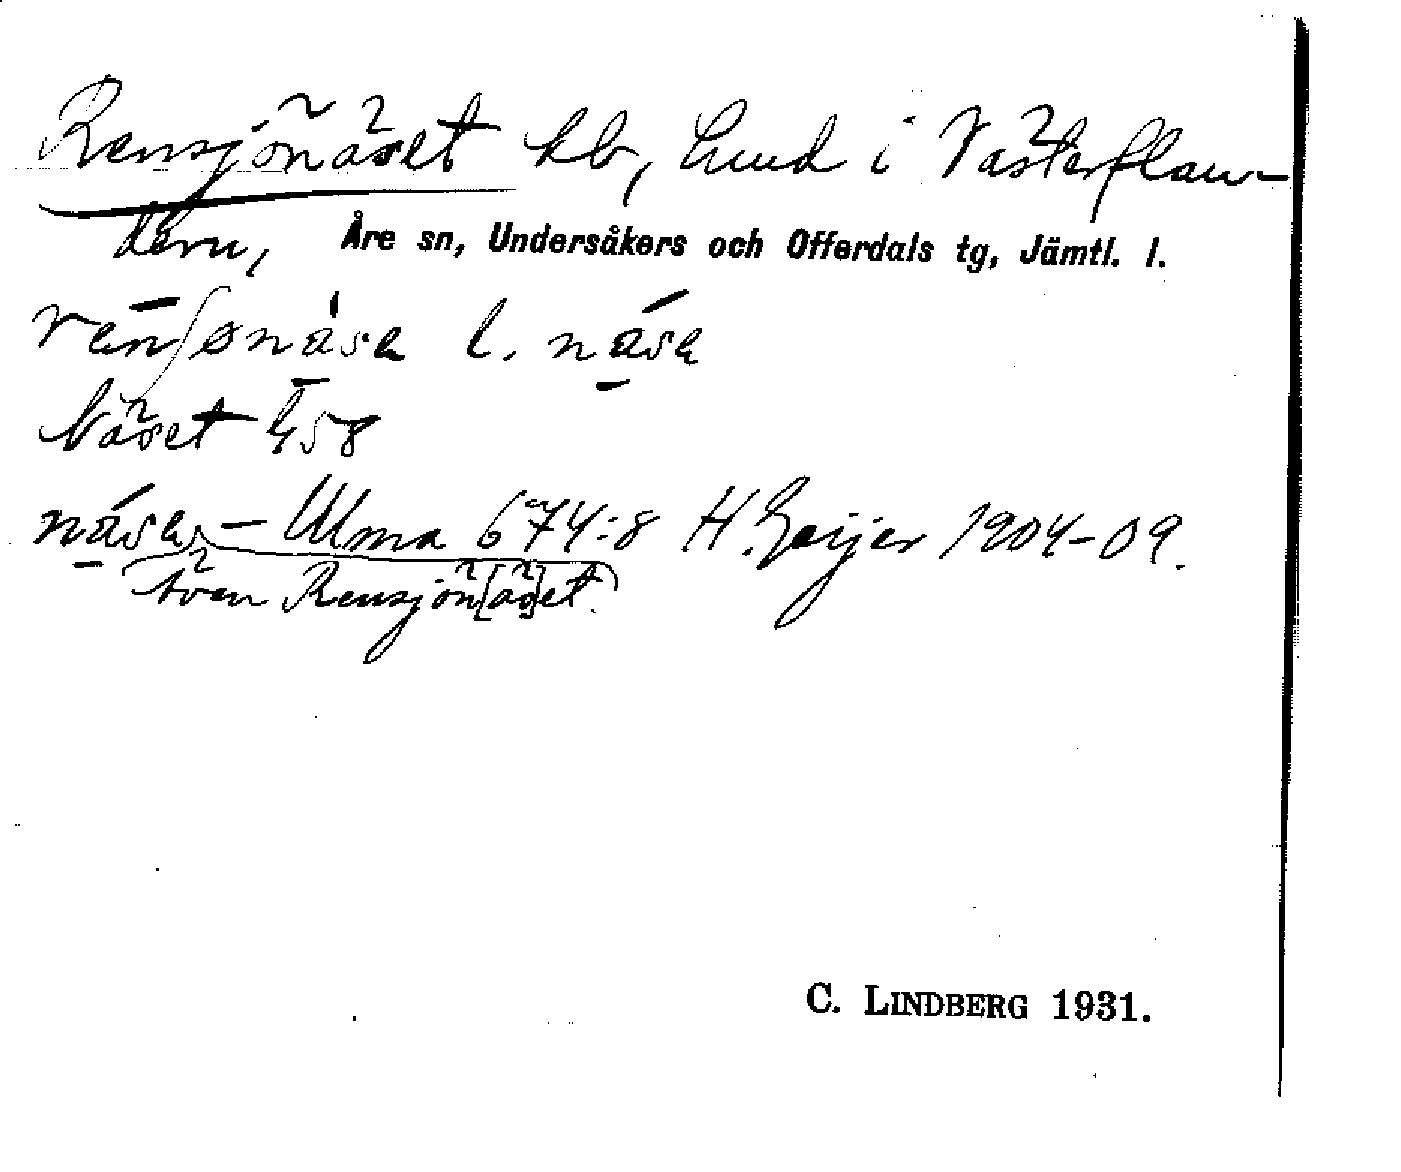 Rensjönäset hb, Lund i Västerflan-
dern, Åre sn, Undersåkers och Offerdals tg, Jämtl. l.
rēnʃønàsa l. nása
Näset
nása – Ulma 674:8 H. Geijer 1904-09.
även Rensjön[äs]et.
C. LINDBERG 1931.